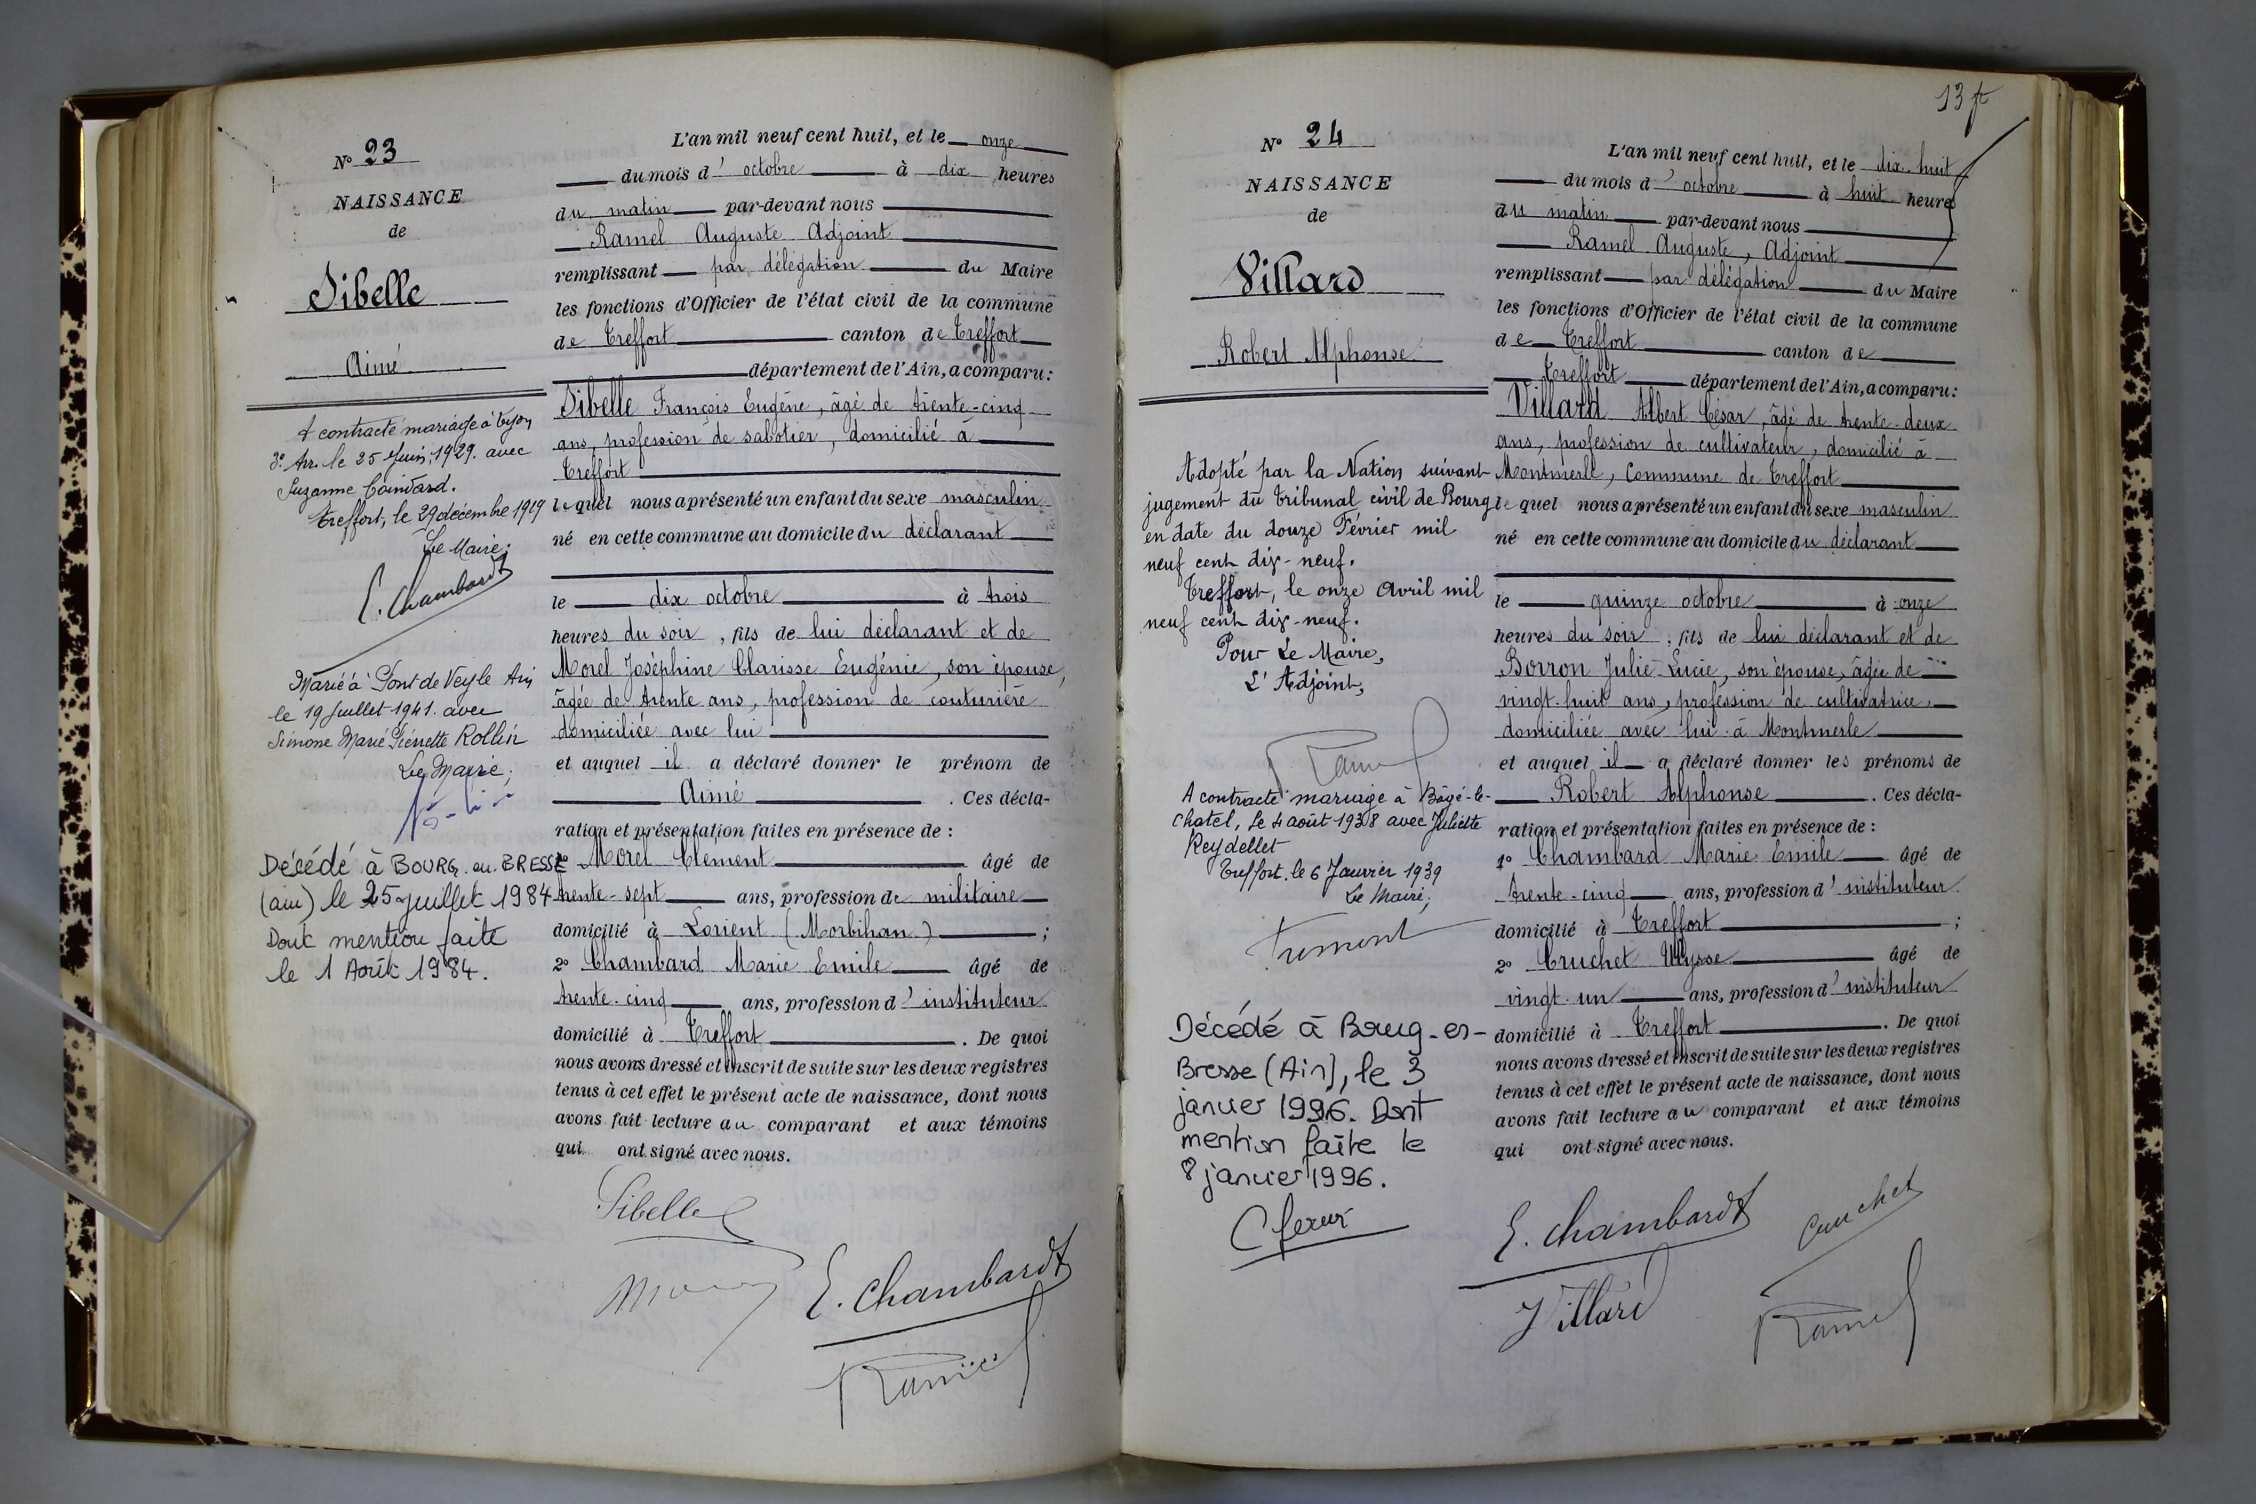 N° 23
NAISSANCE
de
Sibelle
Aimé
A contracté mariage à Lyon
3e Arr. le 25 Juin 1929. avec
Suzanne Coindard.
Treffort, le 29 décembre 1919
Le Maire;
E. Chambard
Marié à Pont de Veyle Ain
le 19 Juillet 1941. avec
Simone Marie Pierrette Rollin
Le Maire;
Décédé à BOURG-en-BRESSE
(ain) le 25 juillet 1984
Dont mention faite
le 1 Août 1984.
L'an mil neuf cent huit, et le onze
du mois d'octobre à dix heures
du matin par-devant nous
Ramel Auguste Adjoint
remplissant par délégation du Maire
les fonctions d'Officier de l'état civil de la commune
de Treffort canton de Treffort
département de l'Ain, a comparu:
Sibelle François Eugène, âgé de trente-cinq
ans, profession de sabotier, domicilié à
Treffort
lequel nous a présenté un enfant du sexe masculin
né en cette commune au domicile du déclarant
le dix octobre à trois
heures du soir, fils de lui déclarant et de
Morel Joséphine Clarisse Eugénie, son épouse,
âgée de trente ans, profession de couturière
domiciliée avec lui
et auquel il a déclaré donner le prénom de
Aimé. Ces décla-
ration et présentation faites en présence de :
1° Morel Clément âgé de
trente-sept ans, profession de militaire
domicilié à Lorient (Morbihan) ;
2° Chambard Marie Emile âgé de
trente-cinq ans, profession d'instituteur
domicilié à Treffort. De quoi
nous avons dressé et inscrit de suite sur les deux registres
tenus à cet effet le présent acte de naissance, dont nous
avons fait lecture au comparant et aux témoins
qui ont signé avec nous.
Sibelle
E. Chambard
Ramel
13 f
N° 24
NAISSANCE
de
Villard
Robert Alphonse
Adopté par la Nation suivant
jugement du tribunal civil de Bourg
en date du douze Février mil
neuf cent dix-neuf.
Treffort, le onze Avril mil
neuf cent dix-neuf.
Pour Le Maire,
L'Adjoint,
Ramel
A contracté mariage à Bâgé-le-
Chatel, le 4 août 1938 avec Juliette
Reydellet
Treffort. le 6 Janvier 1939
Le Maire,
Décédé à Bourg-en-
Bresse (Ain), le 3
janvier 1996. Dont
mention faite le
8 janvier 1996.
L'an mil neuf cent huit, et le dix-huit
du mois d'octobre à huit heures
du matin par-devant nous
Ramel Auguste, Adjoint
remplissant par délégation du Maire
les fonctions d'Officier de l'état civil de la commune
de Treffort canton de
Treffort département de l'Ain, a comparu:
Villard Albert César, âgé de trente-deux
ans, profession de cultivateur, domicilié à
Montmerle, Commune de Treffort
lequel nous a présenté un enfant du sexe masculin
né en cette commune au domicile du déclarant
le quinze octobre à onze
heures du soir, fils de lui déclarant et de
Borron Julie-Lucie, son épouse, âgée de
vingt-huit ans, profession de cultivatrice,
domiciliée avec lui à Montmerle
et auquel il a déclaré donner les prénoms de
Robert Alphonse. Ces décla-
ration et présentation faites en présence de :
1° Chambard Marie Emile âgé de
trente-cinq ans, profession d'instituteur
domicilié à Treffort ;
2° Cruchet Ulysse âgé de
vingt-un ans, profession d'instituteur
domicilié à Treffort. De quoi
nous avons dressé et inscrit de suite sur les deux registres
tenus à cet effet le présent acte de naissance, dont nous
avons fait lecture au comparant et aux témoins
qui ont signé avec nous.
E. Chambard
Cruchet
Villard
Ramel